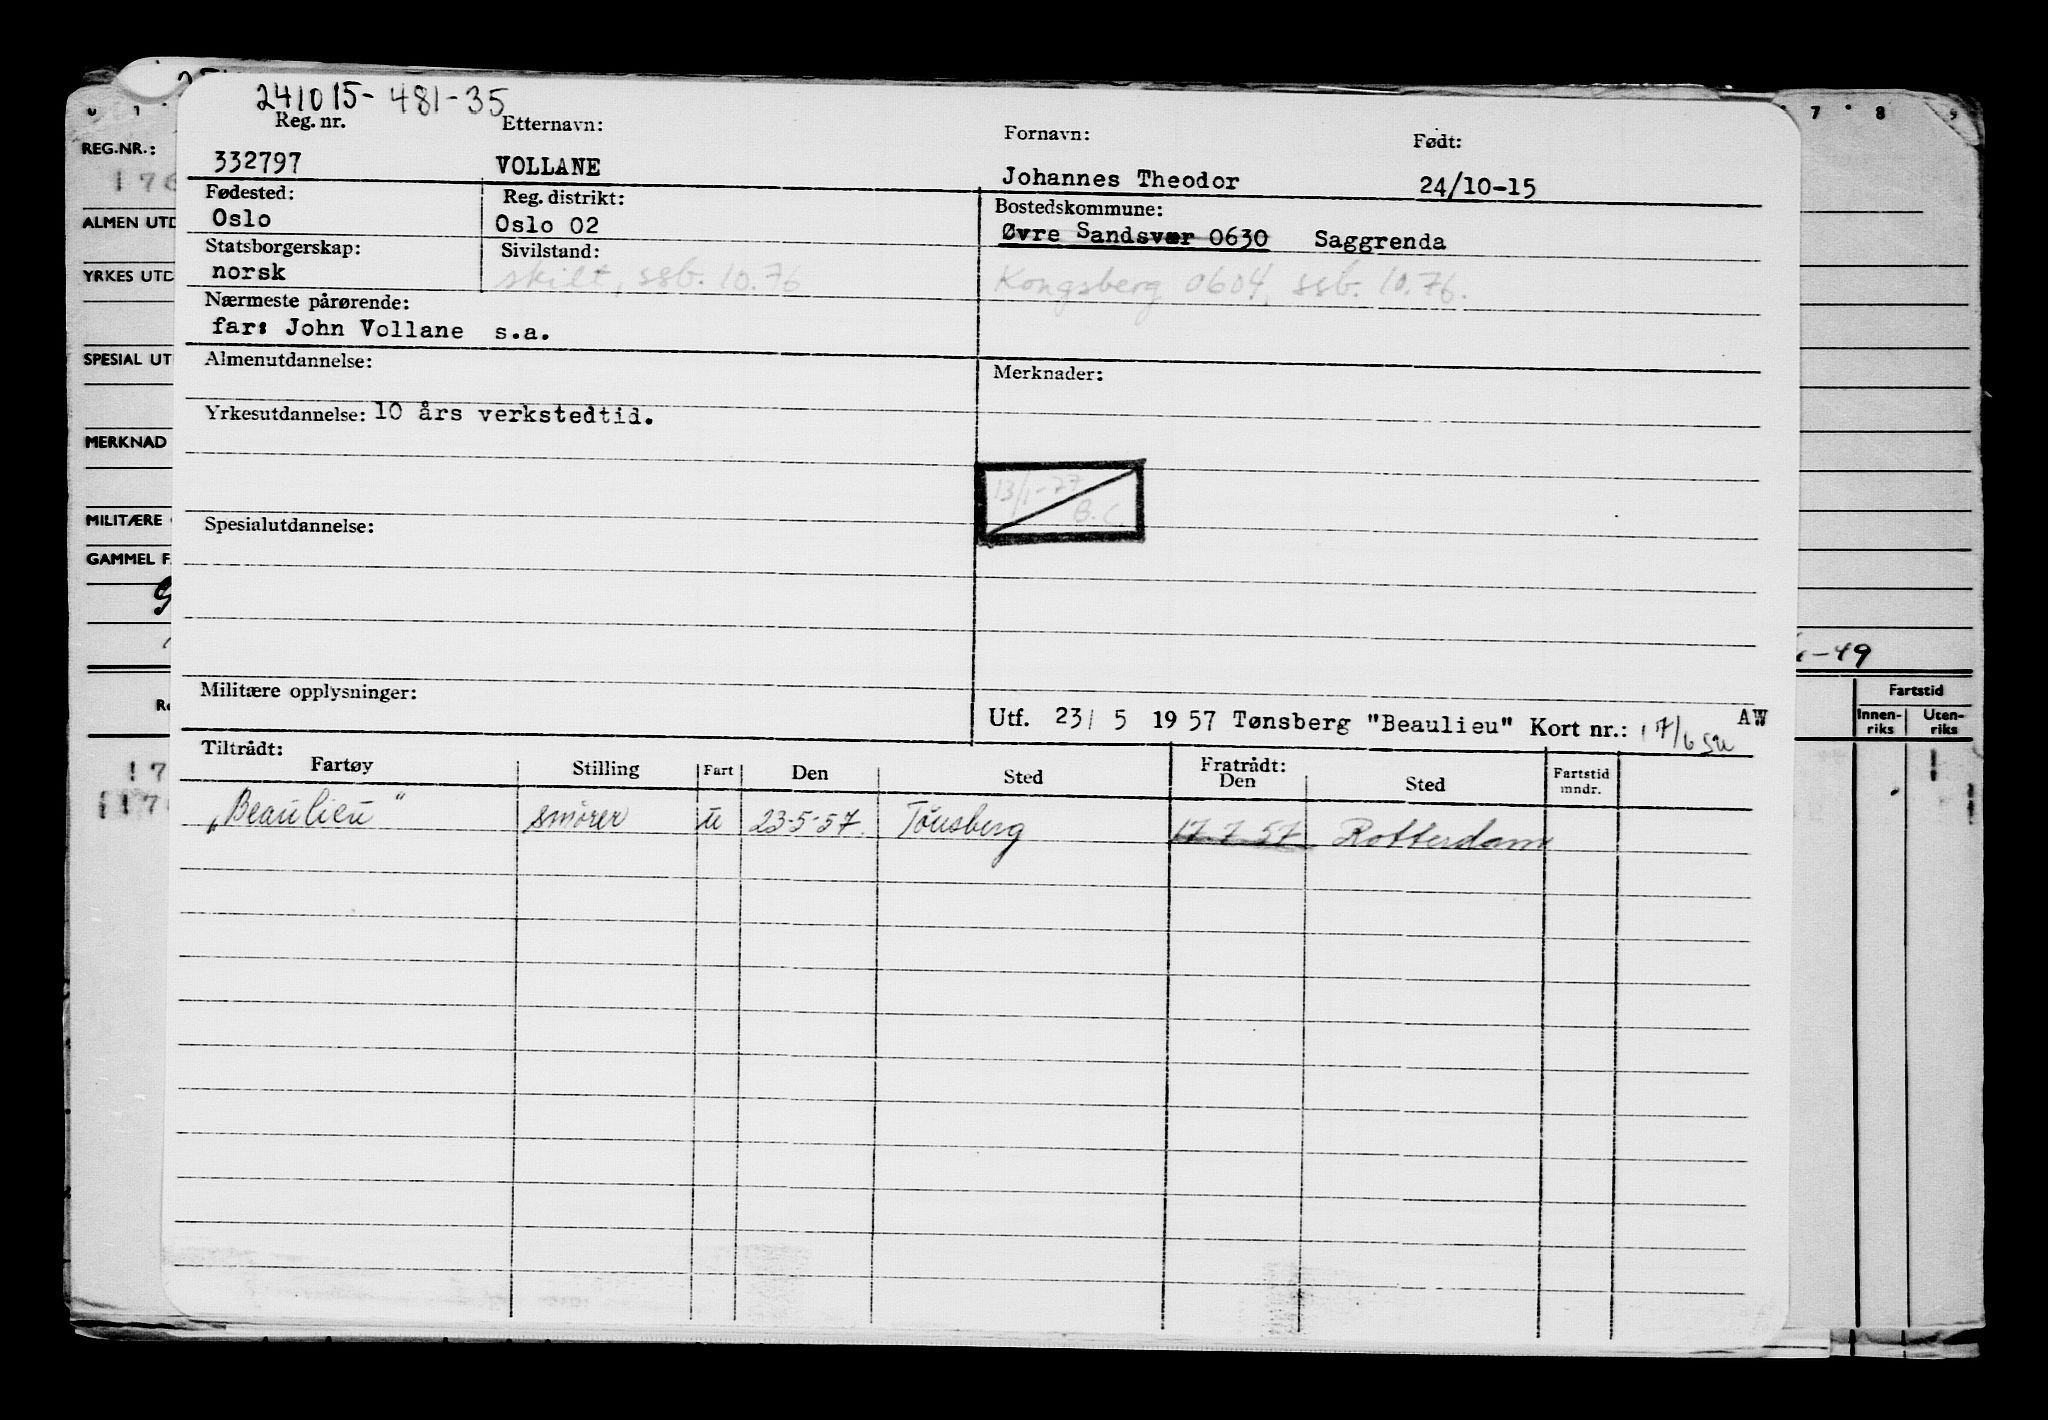 241015-481-35
Reg. nr. Etternavn: Fornavn: Født:
332797 VOLLANE Johannes Theodor 24/10-15
Fødested: Reg. distrikt: Bostedskommune:
Oslo Oslo 02 Øvre Sandsvær 0630 Saggrenda
Statsborgerskap: Sivilstand:
norsk skilt, ssb. 10.76 Kongsberg 0604, ssb. 10.76.
Nærmeste pårørende:
far: John Vollane s.a.
Almenutdannelse: Merknader:
Yrkesutdannelse: 10 års verkstedtid.
13/1-77
B.C.
Spesialutdannelse:
Militære opplysninger:
Utf. 23/ 5 1957 Tønsberg "Beaulieu" Kort nr.: 1 AW
17/6
Tiltrådt: Fratrådt:
Fartøy Stilling Fart Den Sted Den Sted Fartstid mndr.
"Beaulieu" smører u 23-5-57. Tönsberg 17 7 57 Rotterdam
REG.NR.:
176
ALMEN UTD
YRKES UTD
SPESIAL UT
MERKNAD
MILITÆRE
GAMMEL F
7 8 9
-49
Fartstid
Innen-riks Uten-riks